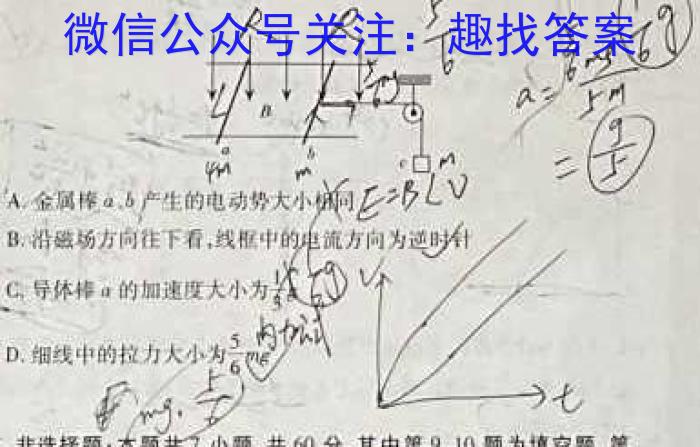 微信公众号关注：趣找答案
B
a
b
c
4M
m
M
5/6 mg
a=
5M
= g/5
A. 金属棒 a、b 产生的电动势大小相同
E=BLV
B. 沿磁场方向往下看,线框中的电流方向为逆时针
C. 导体棒 a 的加速度大小为
V
t
D. 细线中的拉力大小为 5/6 mg
mg.
非选择题:本题共 7 小题,共 60 分,其中第 9、10 题为填空题,第